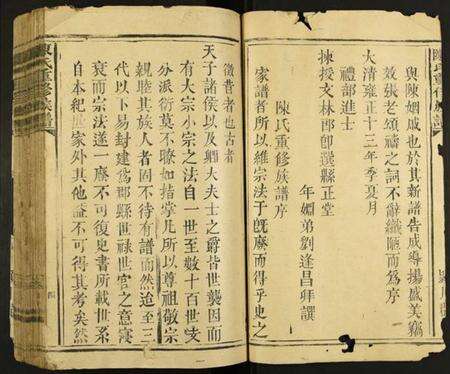 與陳姻戚也於其新譜告成導揚盛美竊
效張老頌禱之詞不辭譾陋而爲序
大清雍正十三年季夏月
禮部進士
揀授文林郎即選縣正堂
年姻弟劉逢昌拜譔
陳氏重修族譜序
家譜者所以維宗法于旣廢而得乎史之
徵者也古者
天子諸侯以及卿大夫士之爵皆世襲因而
有大宗小宗之法自一世至數十百世支
分派衍莫不瞭如指掌凡所以尊祖敬宗
親睦其族人者固不待有譜而然迨至三
代以下易封建爲郡縣世祿世官之意寖
衰而宗法遂一廢不可復史書所載世系
自本紀世家外其他益不可得其考矣然
陳氏重修族譜
四